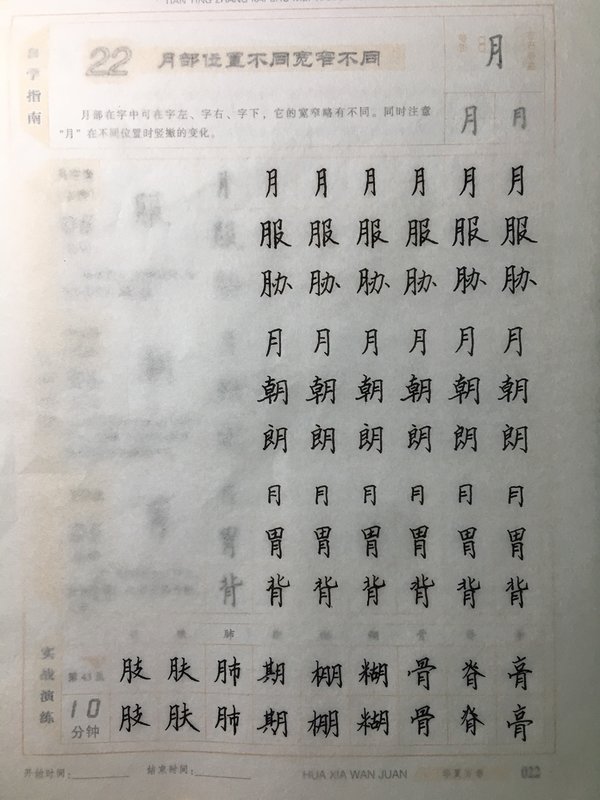 自学指南
22 月部位置不同宽窄不同
月
月部在字中可在字左、字右、字下，它的宽窄略有不同。同时注意
“月”在不同位置时竖撇的变化。
月 月
月 月 月 月 月 月 月
服 服 服 服 服 服 服 服
胁 胁 胁 胁 胁 胁
月 月 月 月 月 月
朝 朝 朝 朝 朝 朝
朗 朗 朗 朗 朗 朗
月 月 月 月 月 月
胃 胃 胃 胃 胃 胃 胃
背 背 背 背 背 背 背
肺
实战演练
第43集 肢 肤 肺 期 棚 糊 骨 脊 膏
10分钟 肢 肤 肺 期 棚 糊 骨 脊 膏
开始时间： 结束时间： HUA XIA WAN JUAN 华夏万卷 022